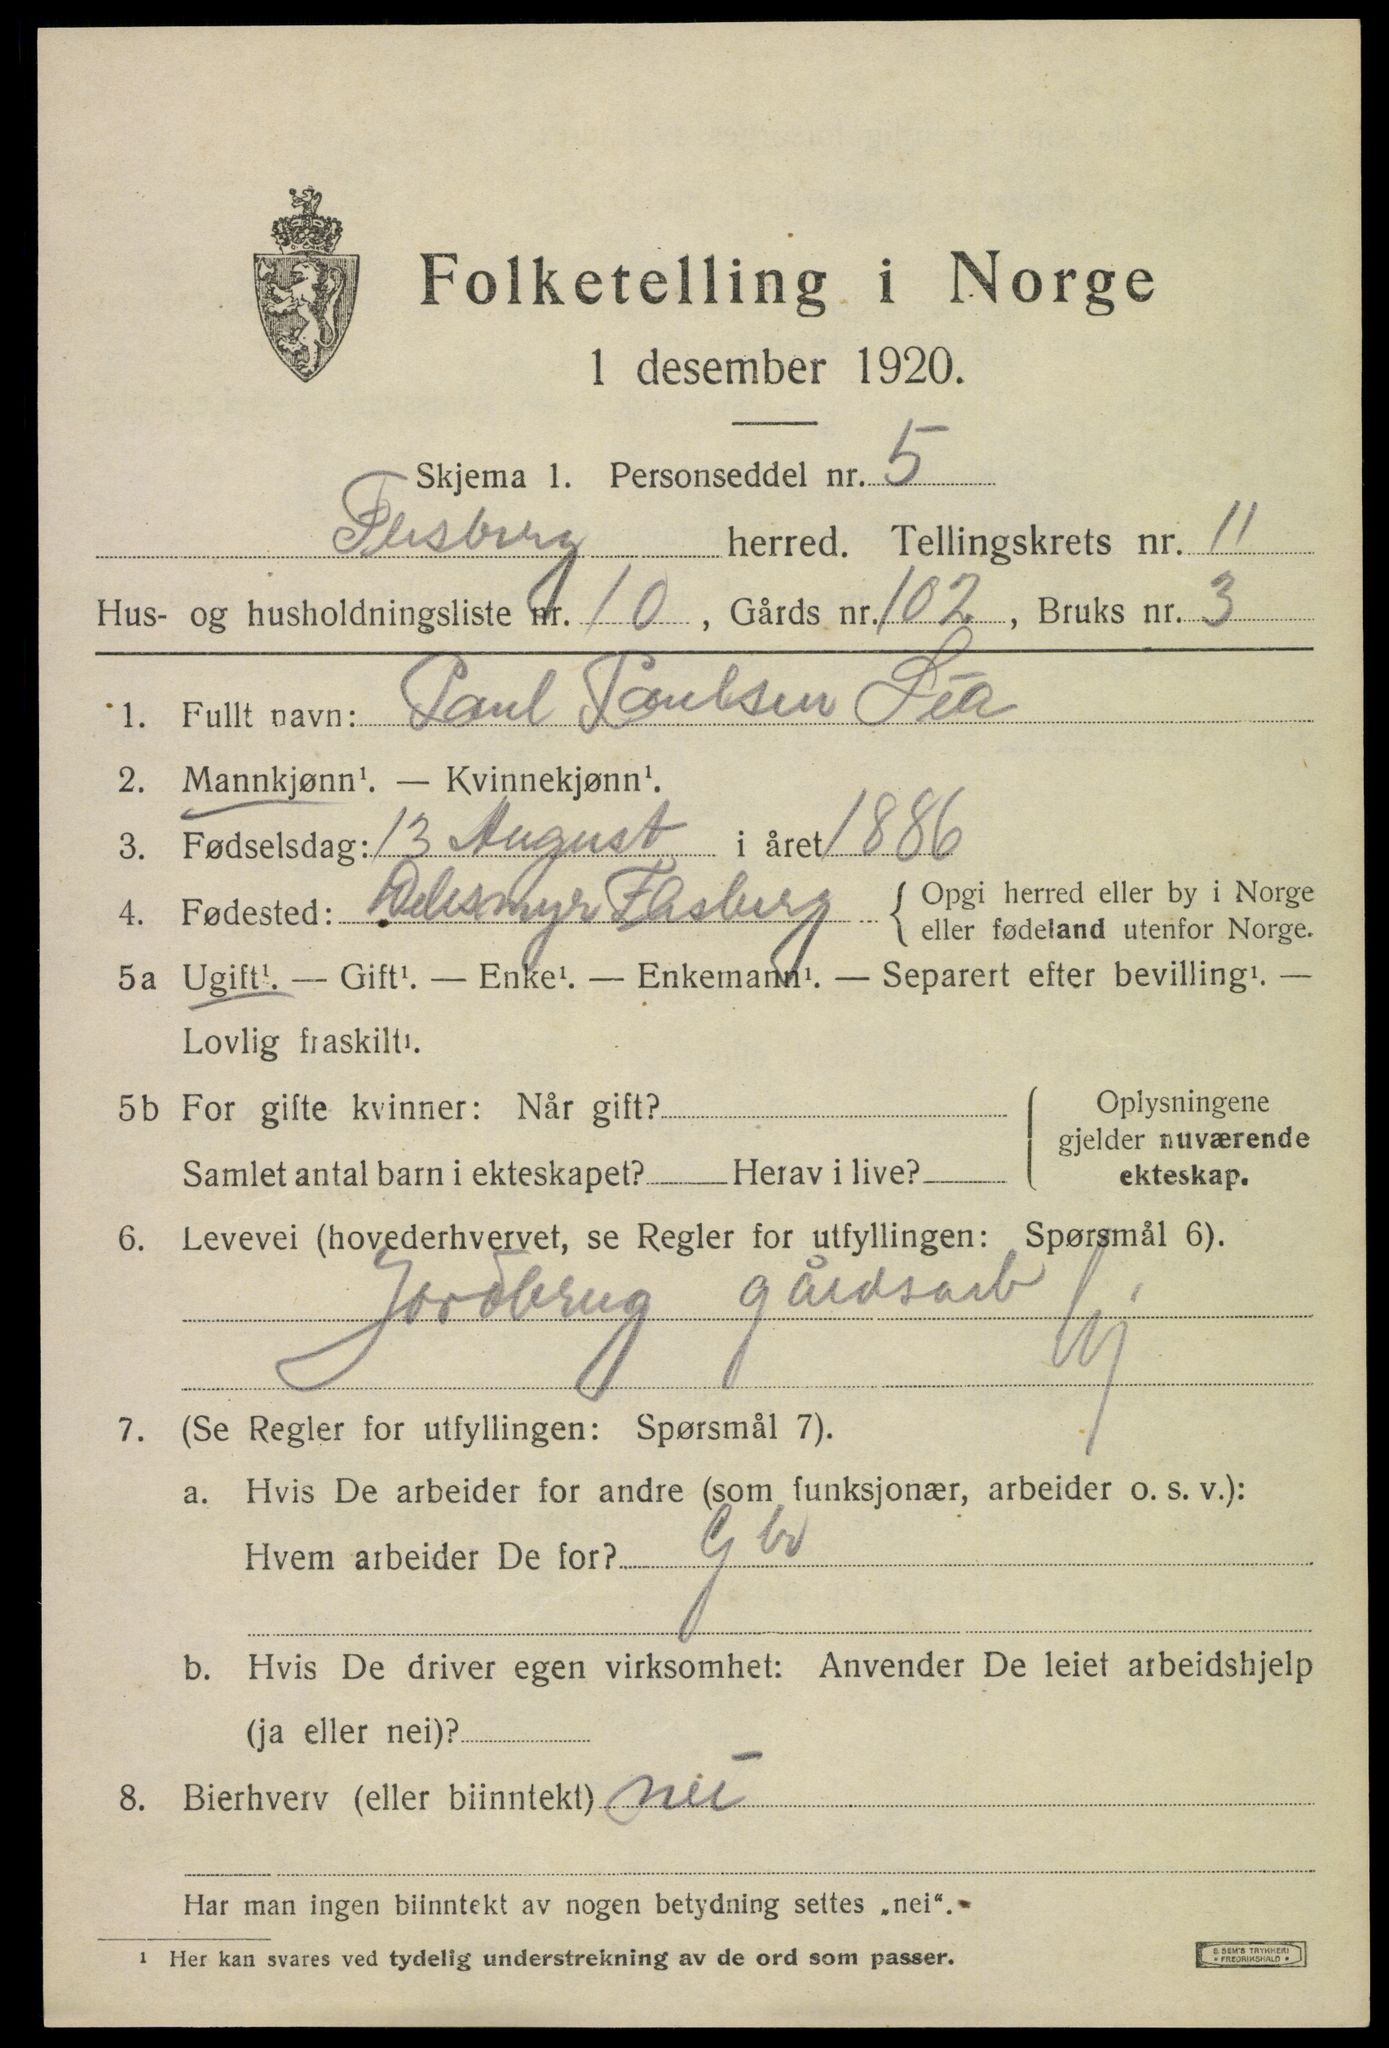 Folketelling i Norge
1 desember 1920.
Skjema 1. Personseddel nr. 5
Flesberg herred. Tellingskrets nr. 11
Hus- og husholdningsliste nr. 10, Gårds nr. 102, Bruks nr. 3
1. Fullt navn: Paul Paulsen Lia
2. Mannkjønn¹. — Kvinnekjønn¹.
3. Fødselsdag: 13 August i året 1886
4. Fødested: Flesberg { Opgi herred eller by i Norge
eller fødeland utenfor Norge.
5a Ugift¹. — Gift¹. — Enke¹. — Enkemann¹. — Separert efter bevilling¹. —
Lovlig fraskilt¹.
5b For gifte kvinner: Når gift? { Oplysningene
gjelder nuværende
Samlet antal barn i ekteskapet? Herav i live? ekteskap.
6. Levevei (hovederhvervet, se Regler for utfyllingen: Spørsmål 6).
Jordbrug gårdsarb
7. (Se Regler for utfyllingen: Spørsmål 7).
a. Hvis De arbeider for andre (som funksjonær, arbeider o. s. v.):
Hvem arbeider De for? Gbr
b. Hvis De driver egen virksomhet: Anvender De leiet arbeidshjelp
(ja eller nei)?
8. Bierhverv (eller biinntekt) nei
Har man ingen biinntekt av nogen betydning settes „nei“.
¹ Her kan svares ved tydelig understrekning av de ord som passer.
S. SEM'S TRYKKERI
FREDRIKSHALD